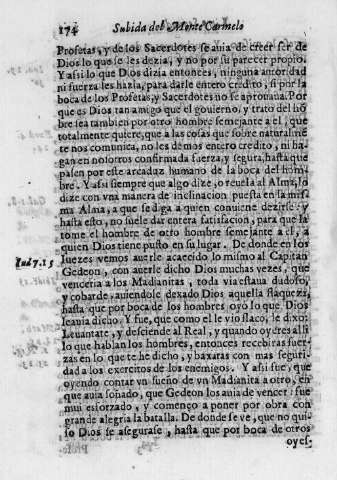 174 Subida del Monte Carmelo
Profetas, y de los Sacerdotes se auia de creer ser de
Dios lo que se les dezia, y no por su parecer propio.
Y assi lo que Dios dizia entonces, ninguna autoridad
ni fuerza les hazia, para darle entero credito, si por la
boca de los Profetas, y Sacerdotes no se aprouaua. Por
que es Dios tan amigo que el gouierno, y trato del hō
bre sea tambien por otro hombre semejante a el, que
totalmente quiere, que a las cosas que sobre naturalmē
te nos comunica, no les demos entero credito, ni ha-
gan en nosotros confirmada fuerza, y segura, hasta que
pasen por este arcaduz humano de la boca del hom-
bre. Y assi siempre que algo dize, o reuela al Alma, lo
dize con vna manera de inclinacion puesta en la mis-
ma Alma, a que se diga a quien conuiene dezirse: y
hasta esto, no suele dar entera satisfacion, para que la
tome el hombre de otro hombre semejante a el, a
quien Dios tiene pusto en su lugar. De donde en los
Iud. 7. 15
Iuezes vemos auerle acaecido lo mismo al Capitan
Gedeon, con auerle dicho Dios muchas vezes, que
venceria a los Madianitas, toda via estaua dudoso,
y cobarde, auiendole dexado Dios aquella flaqueza,
hasta que por boca de los hombres oyó lo que Dios
le auia dicho. Y fue, que como el le vio flaco, le dixo:
Leuantate, y desciende al Real, y quando oyeres alli
lo que hablan los hombres, entonces recebiras fuer-
zas en lo que te he dicho, y baxaras con mas seguri-
dad a los exercitos de los enemigos. Y assi fue, que
oyendo contar vn sueño de vn Madianita a otro, en
que auia soñado, que Gedeon los auia de vencer: fue
mui esforzado, y començo a poner por obra con
grande alegria la batalla. De donde se ve, que no qui-
so Dios se asegurase, hasta que por boca de otros
oyes-